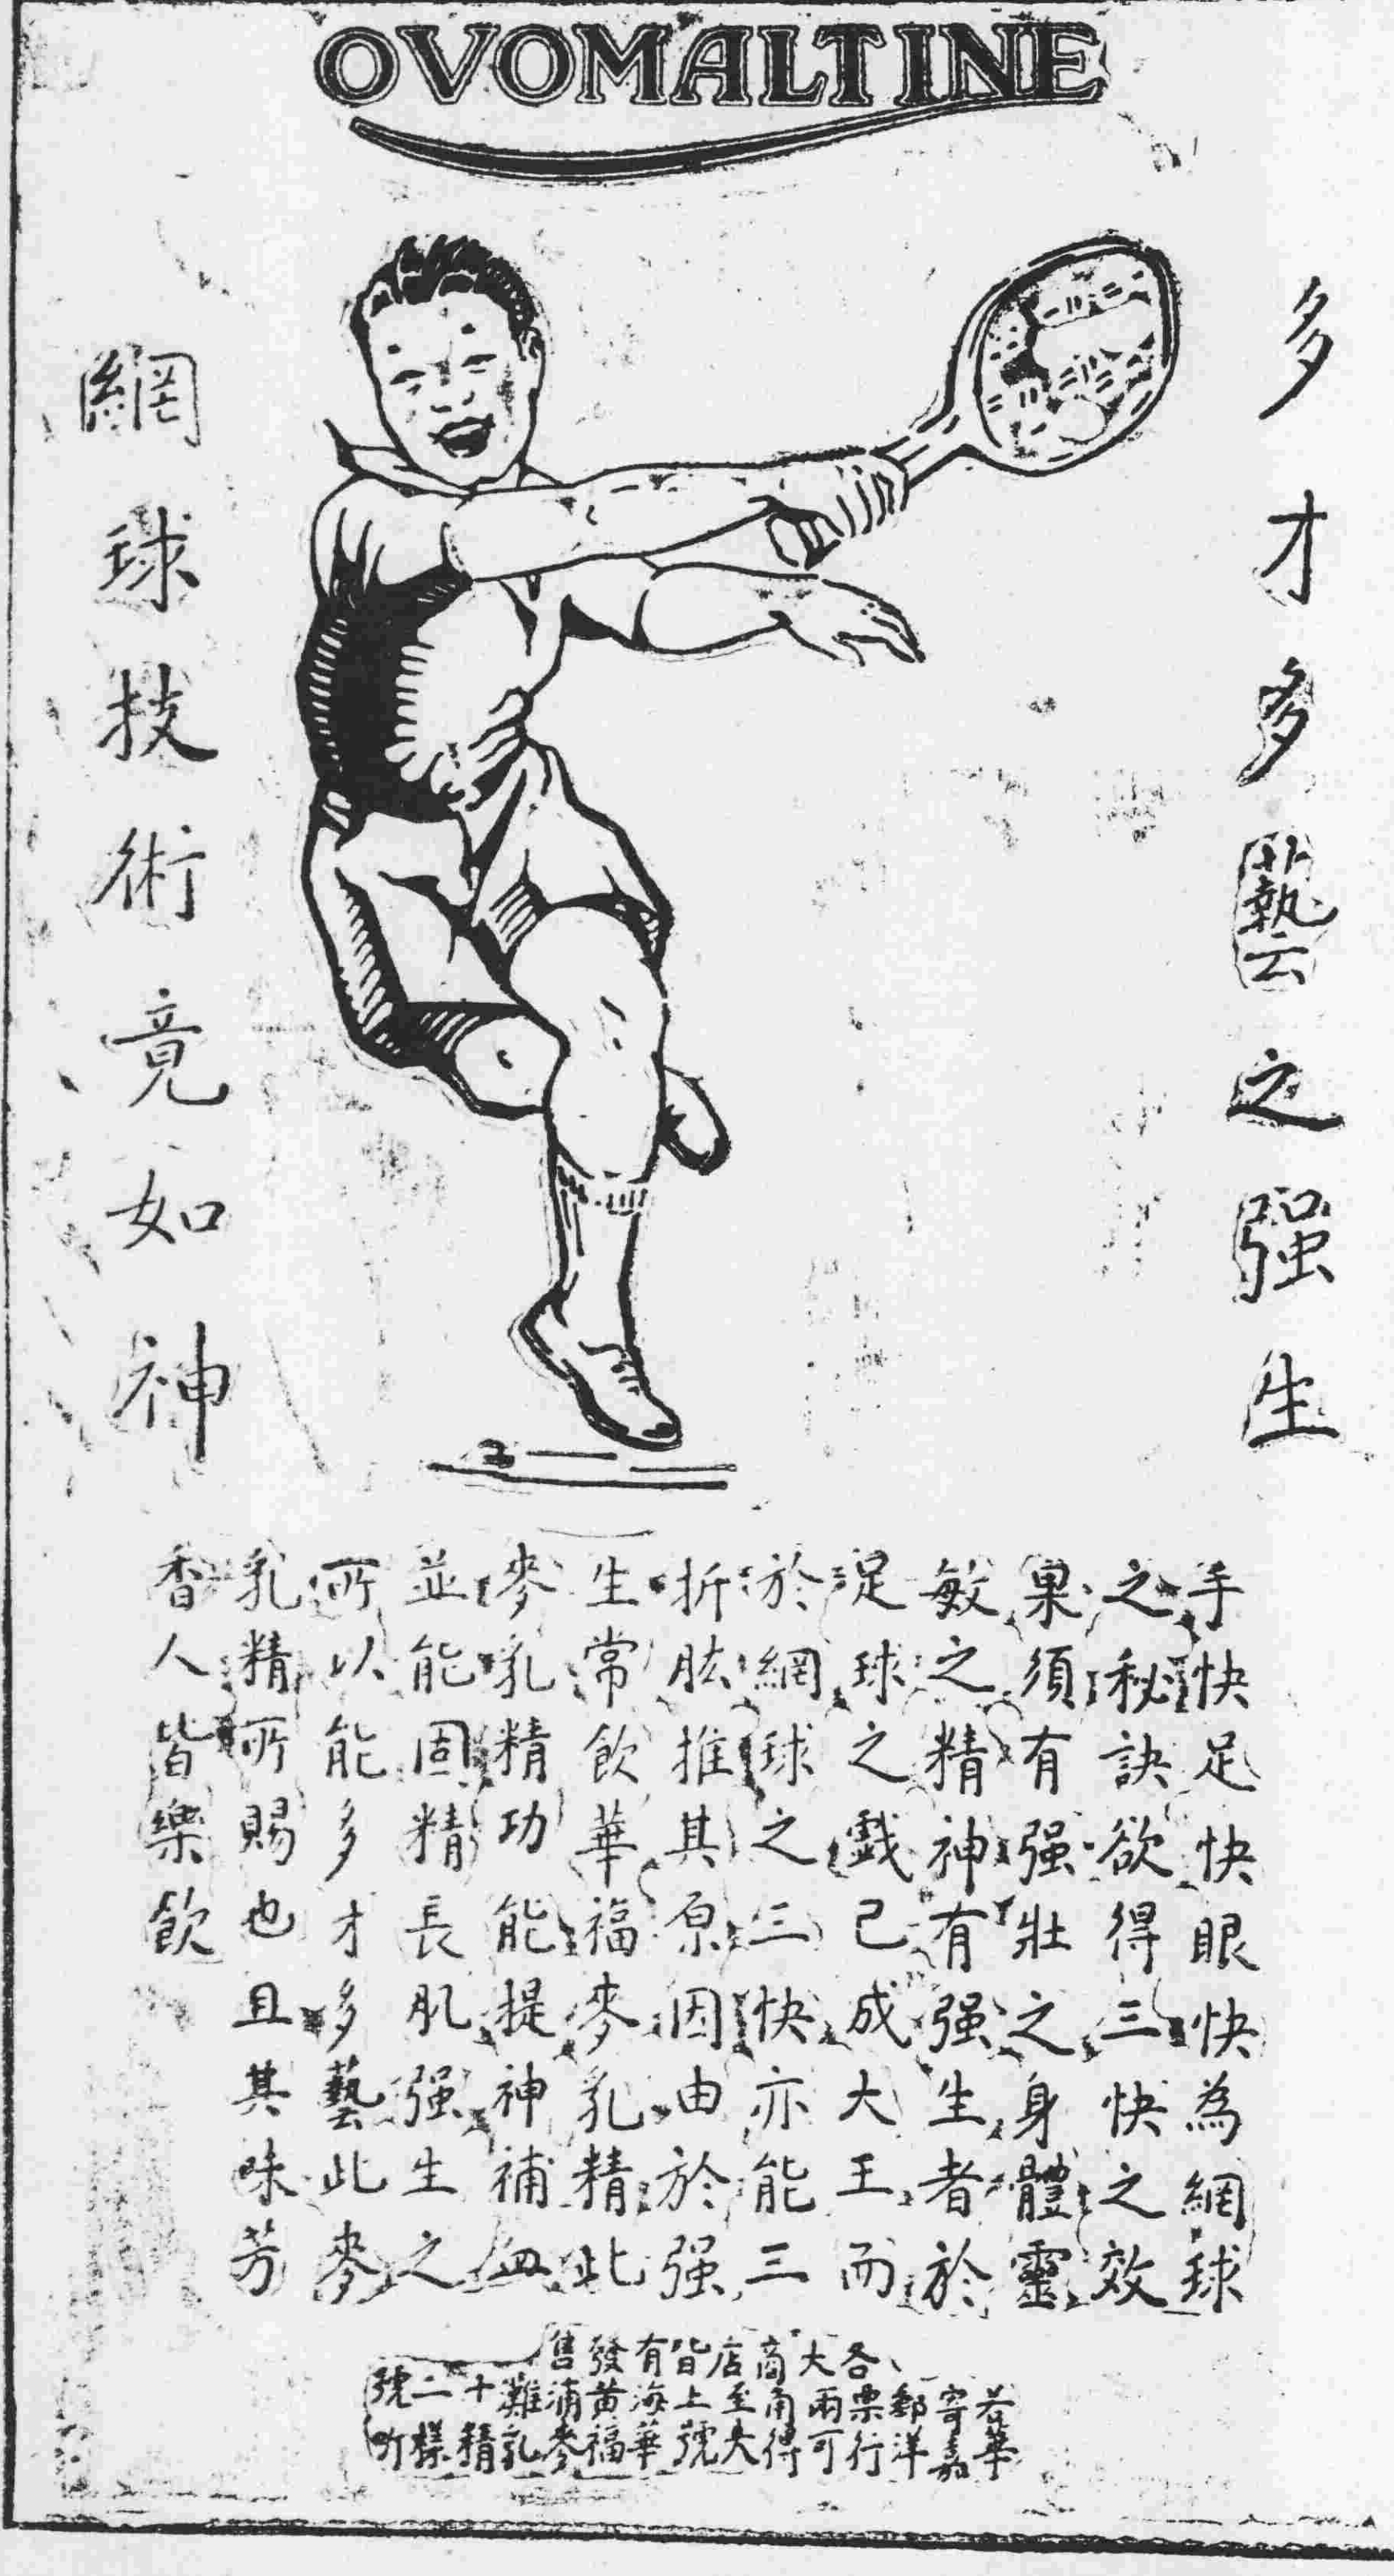 OVOMALTINE
多才多藝之强生
網球技術竟如神
手快足快眼快為網球
之秘訣欲得三快之效
果須有强壯之身體靈
敏之精神有强生者於
足球之戲已成大王而
於網球之三快亦能三
折肱推其原因由於强
生常飲華福麥乳精此
麥乳精功能提神補血
並能固精長肌强生之
所以能多才多藝此麥
乳精所賜也且其味芳
香人皆樂飲
各大商店皆有發售
若寄郵票兩角至上海黄浦灘十二號
華嘉洋行可得大號華福麥乳精樣